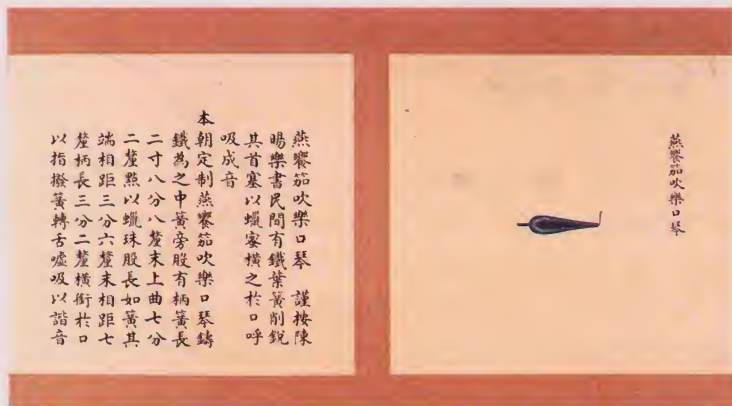 燕饗笳吹樂口琴
燕饗笳吹樂口琴 謹按陳
暘樂書民間有鐵葉簧削銳
其首塞以蠟蜜横之於口呼
吸成音
本朝定制燕饗笳吹樂口琴鑄
鐵為之中簧旁股有柄簧長
二寸八分八釐末上曲七分
二釐點以蠟珠股長如簧其
端相距三分六釐末相距七
釐柄長三分二釐横銜於口
以指撥簧轉舌噓吸以諧音